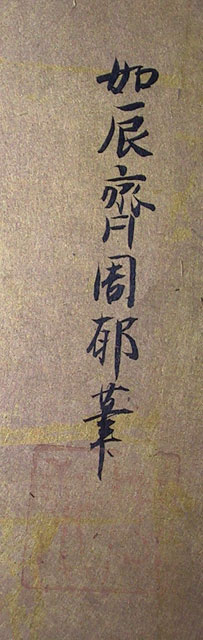 如辰齊周郁筆